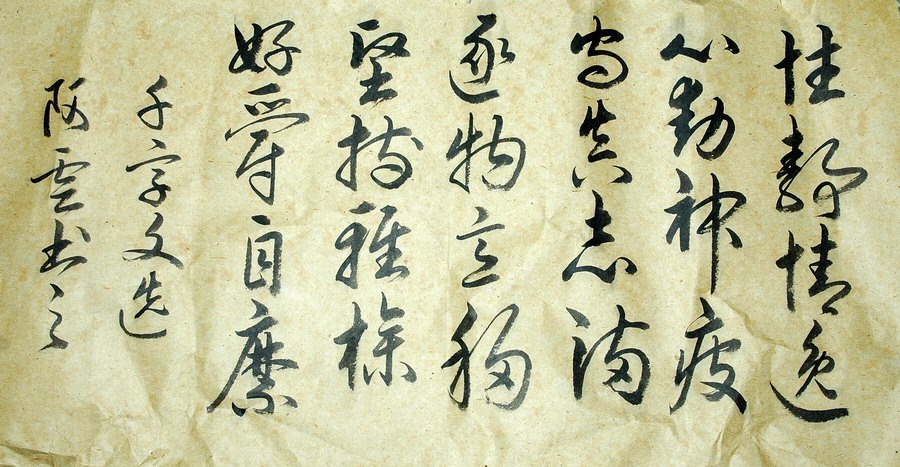 性靜情逸
心動神疲
守真志滿
逐物意移
堅持雅操
好爵自縻
千字文選
阿雲書之